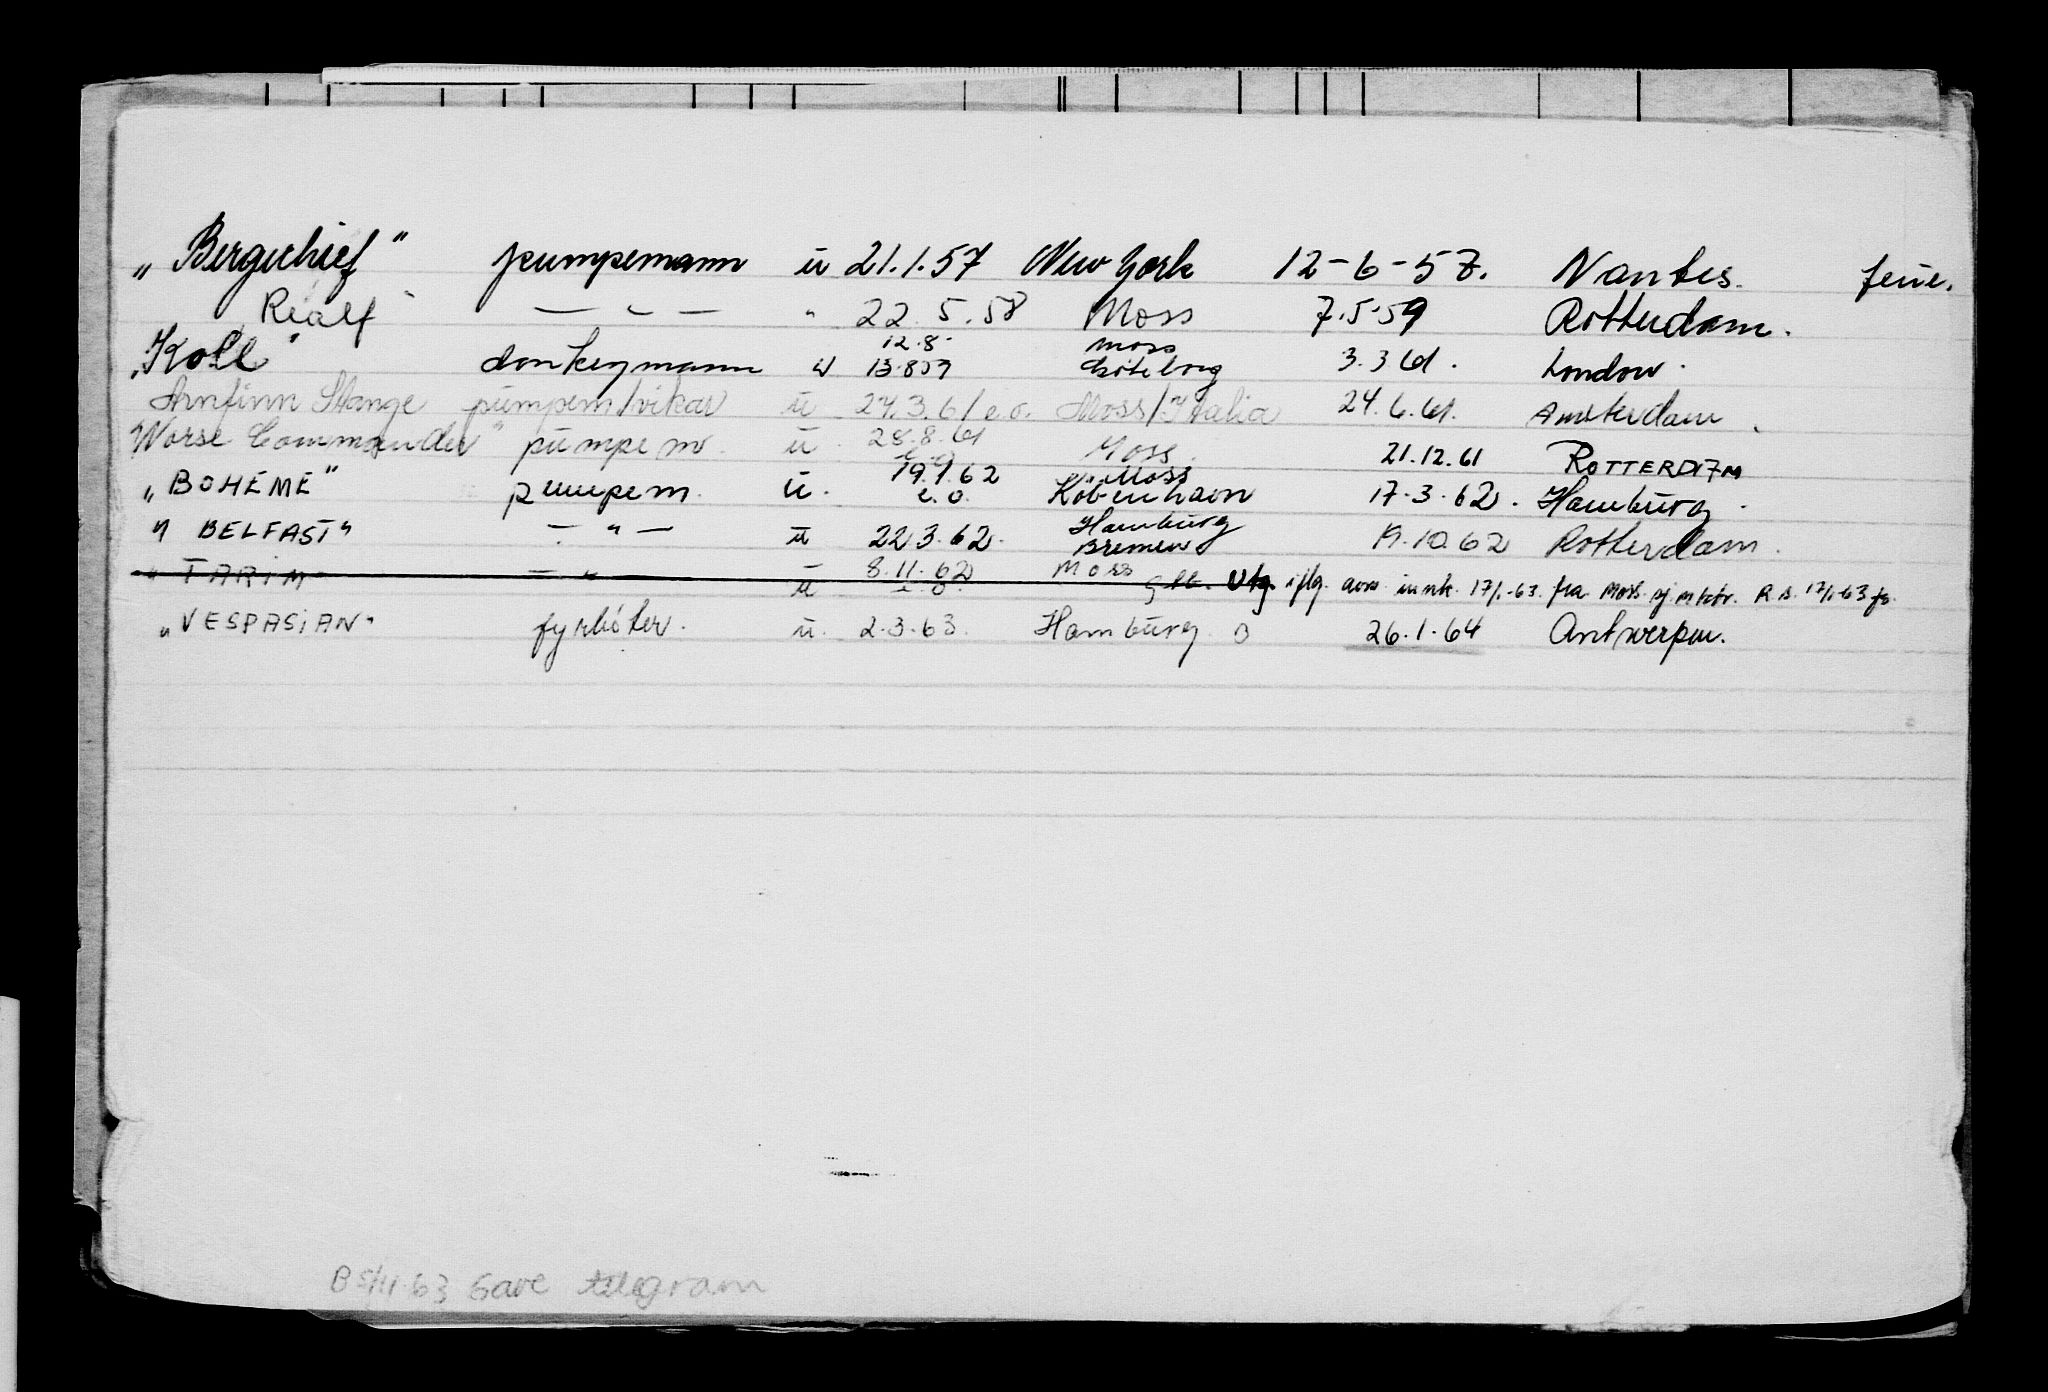 „Bergechief" pumpemann u 21.1.57 New York 12-6-57. Nantes. ferie.
Rialf" — " — " 22.5.58 Moss 7.5.59 Rotterdam.
12.8 Moss
„Koll" donkeymann u 13.8.59 Göteborg 3.3.61. London.
Arnfinn Stange pumpem/vikar u 27.3.61 e.o. Moss/Italia 24.6.61. Amsterdam.
"Worse Commander" pumpem. u 28.8.61 e.o. Moss. 21.12.61 ROTTERDAM
19.1.62 Moss
„BOHEME" pumpem. u. e.o. Köbenhavn 17.3.62. Hamburg.
Hamburg
" BELFAST" — " — u 22.3.62. Bremen 19.10.62 Rotterdam.
" TARIM — " u 8.11.62 e.o. Moss Utg. iflg. innk. 17/1-63. fra Moss sj.m.ktr. R.s. 17/1-63
„VESPASIAN" fyrböter. u. 2.3.63. Hamburg. B 26.1.64 Antwerpen.
B 5/11-63 Gave telegram